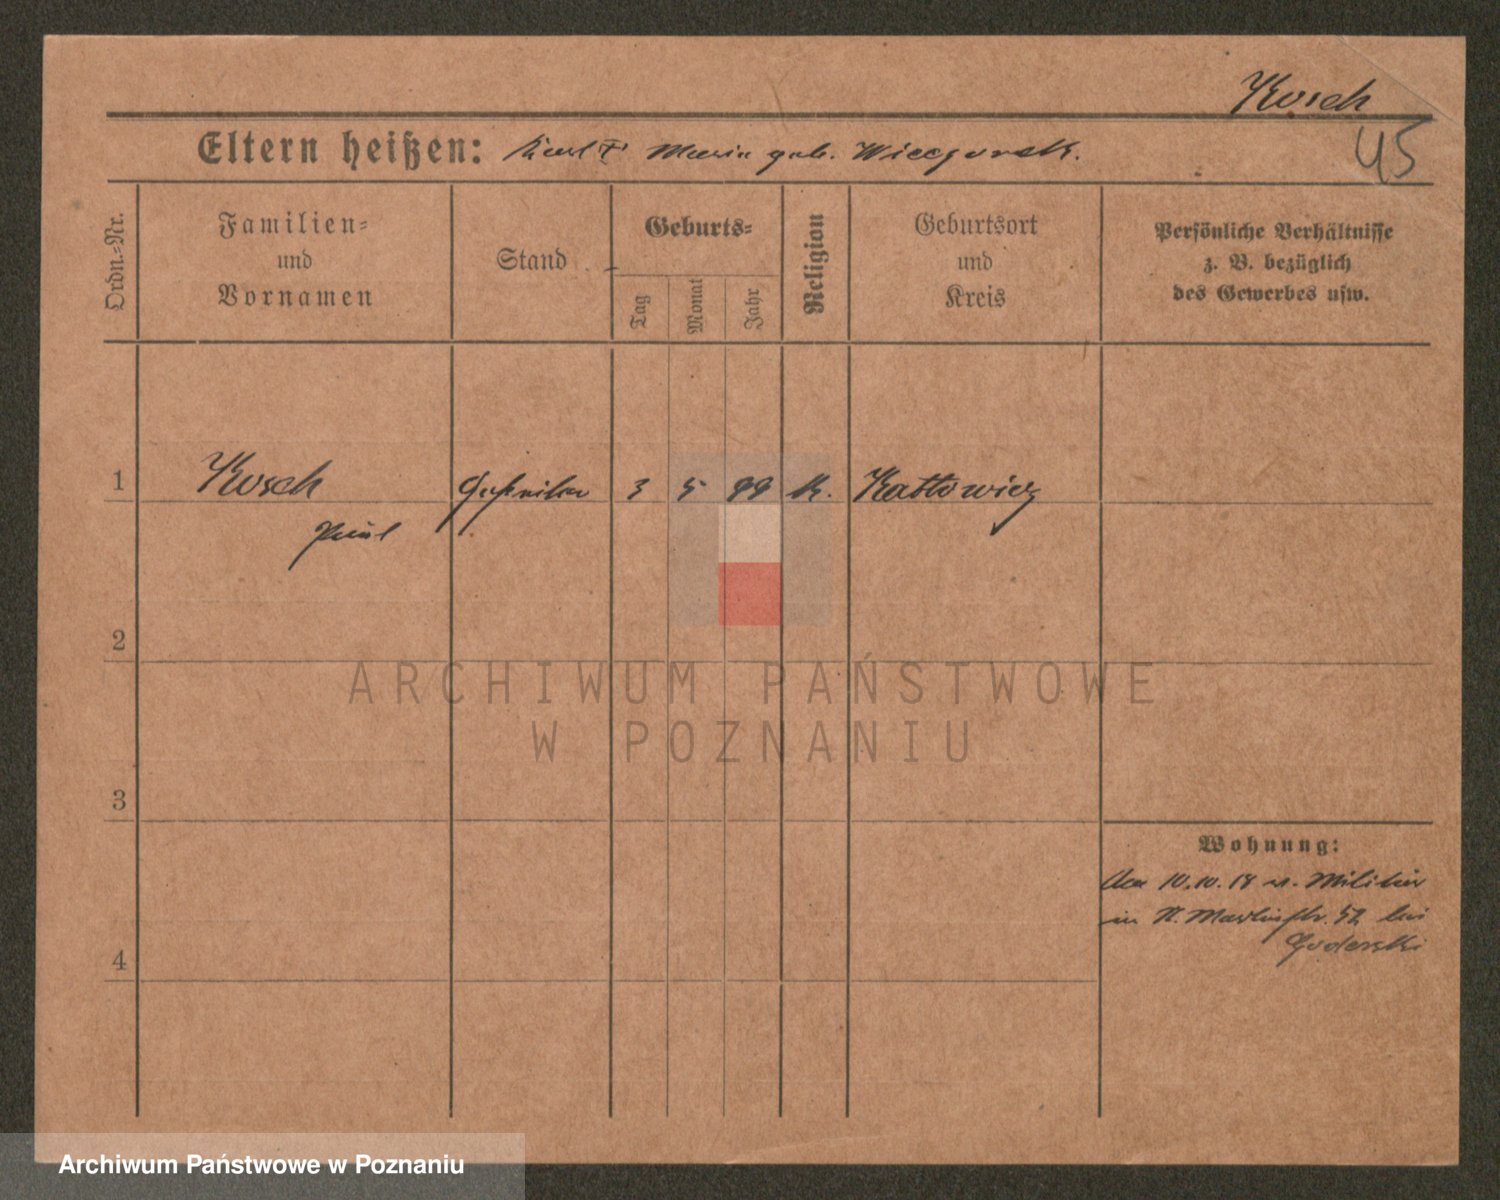 Kosch
45
Eltern heißen: Karl u. Maria geb. Wieczorek.
Ordn.-Nr.
Familien-
und
Vornamen
Stand
Geburts-
Tag
Monat
Jahr
Religion
Geburtsort
und
Kreis
Persönliche Verhältnisse
z. B. bezüglich
des Gewerbes usw.
1 Kosch 3 5 99 K. Kattowicz
Paul
2
3
4
Wohnung:
Am 10.10.18 v. Militär
in St. Martinstr. 52 bei
Goderski
ARCHIWUM PAŃSTWOWE
W POZNANIU
Archiwum Państwowe w Poznaniu